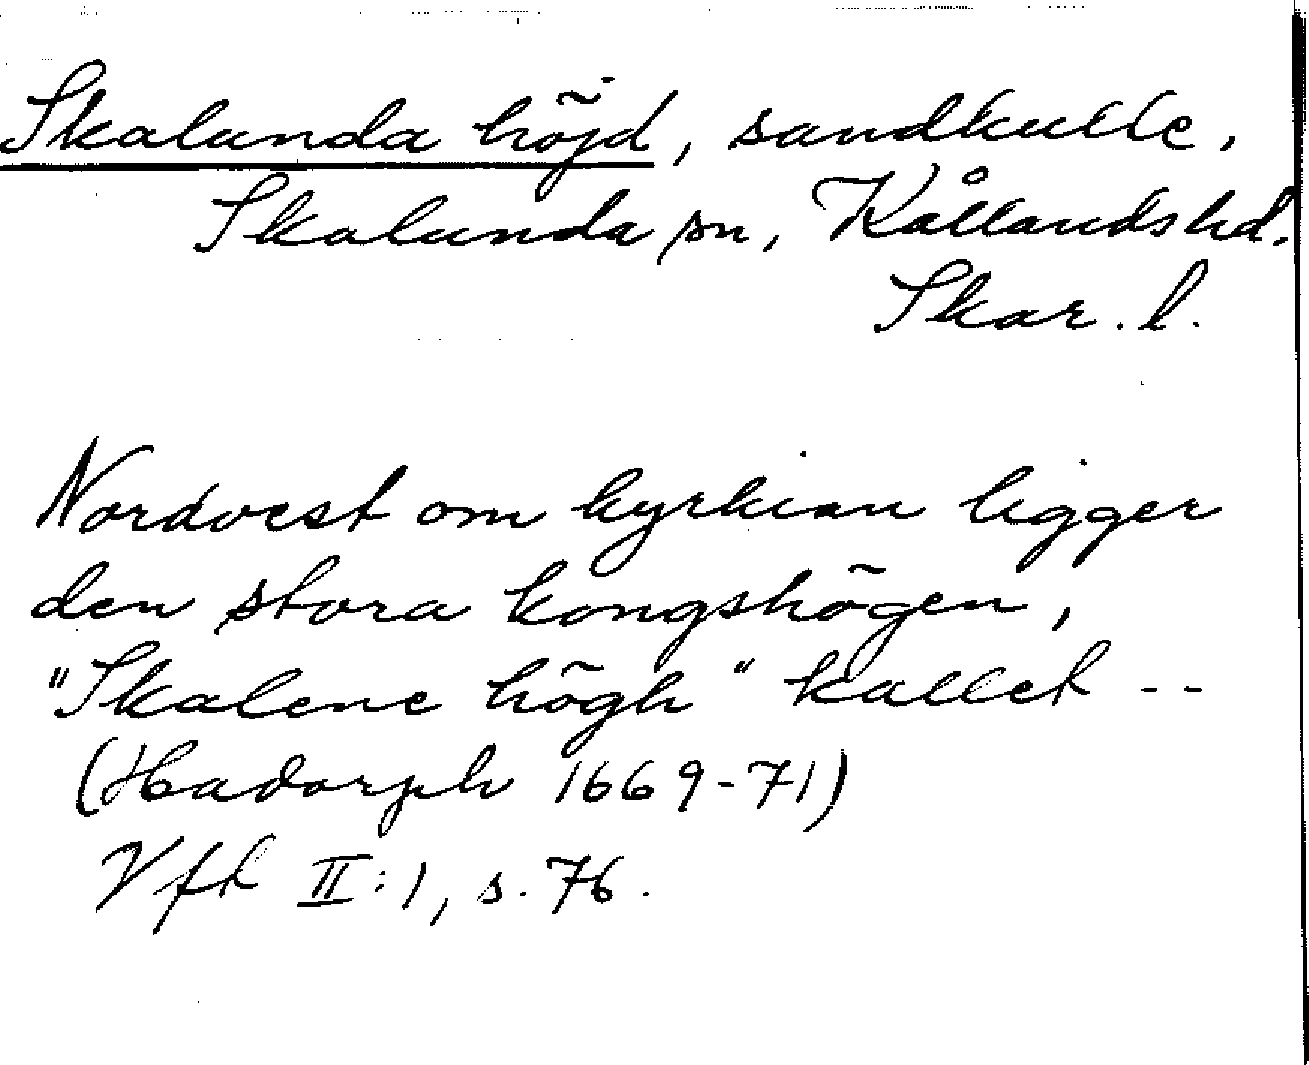 Skalunda höjd, sandkulle,
Skalunda sn, Kållands hd.
Skar. l.
Nordvest om kyrkian ligger
den stora kongshögen,
"Skalene högh" kallet --
(Hadorph 1669-71)
Vft II:1, s. 76.